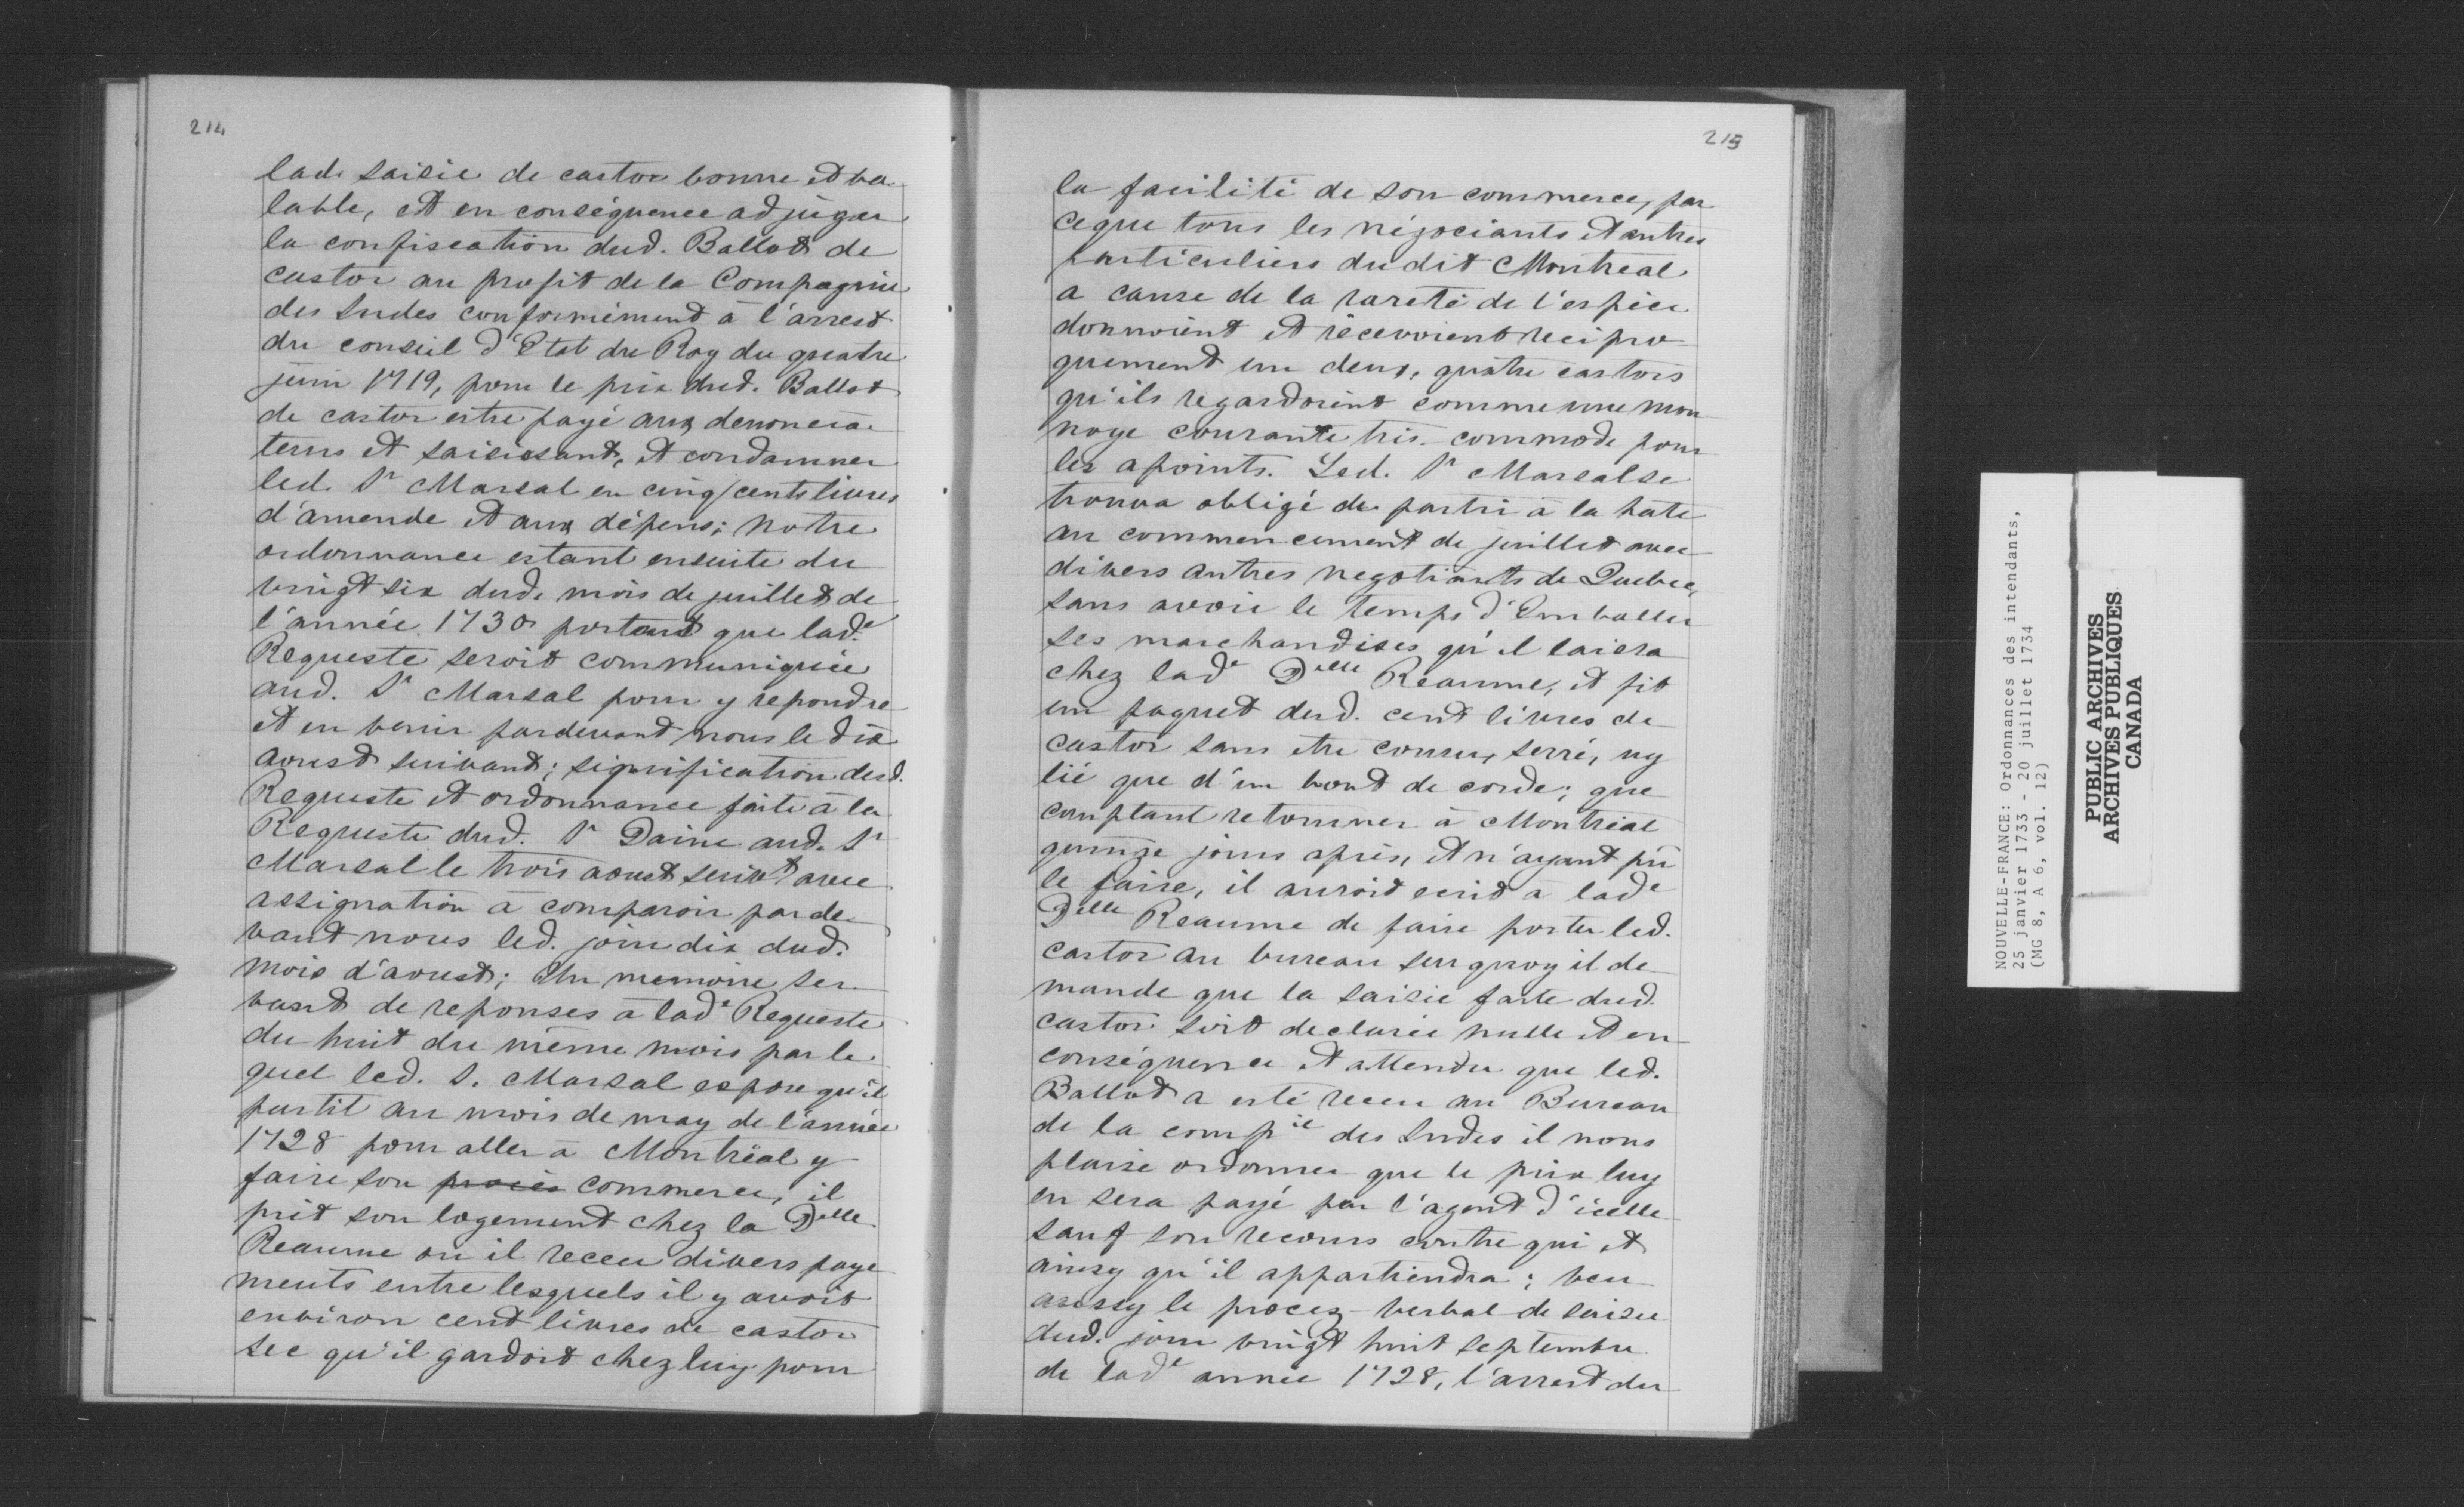 214
lad. saisie de castor bonne et va-
lable, et en conséquence adjuger
la confiscation dud. Ballot de
castor au profit de la Compagnie
des Indes conformément à l'arrest
du conseil d'Etat du Roy du quatre
juin 1719, pour le prix dud. Ballot
de castor estre payé aux denoncia-
teurs et saisissant, et condamner
led. Sr Marsal en cinq cents livres
d'amende et aux dépens; notre
ordonnance estant ensuite du
vingt six dud. mois de juillet de
l'année 1730 portant que lad.e
Requeste seroit communiquée
aud. Sr Marsal pour y repondre
et en venir pardevant nous le dix
aoust suivant; signification desd.
Requeste et ordonnance faite à la
Requeste dud. Sr Daine aud. Sr
Marsal le trois aoust suivt avec
assignation à comparoir parde-
vant nous led. jour dix dud.
mois d'aoust; Un memoire ser-
vant de reponses à lade Requeste
du huit du même mois par le-
quel led. S. Marsal expose qu'il
partit au mois de may de l'année
1728 pour aller à Montréal y
faire son procès commerce, il
prit son logement chez la Delle
Reaume ou il receu divers paye-
ments entre lesquels il y avoit
environ cent livres de castor
sec qu'il gardoit chez luy pour
215
la facilité de son commerce, par
ceque tous les négociants et autres
particuliers dudit Montreal
a cause de la rareté de l'espèce
donnoient et recevoient recipro-
quement un deux, quatre castors
qu'ils regardoient comme une mon-
noye courante très commode pour
les apoints. Led. Sr Marsal se
trouva obligé de partir à la hate
au commencement de juillet avec
divers autres negotiants de Quebec,
sans avoir le temps d'Emballer
ses marchandises qu'il laissa
chez lade Delle Reaume, et fit
un paquet desd. cent livres de
castor sans etre cousu, serré, ny
lié que d'un bout de corde; que
comptant retourner à Montréal
quinze jours après, et n'ayant pû
le faire, il auroit ecrit à lade
Delle Reaume de faire porter led.
castor au bureau sur quoy il de-
mande que la saisie faite dud.
castor soit declarée nulle et en
conséquence et attendu que led.
Ballot a esté receu au Bureau
de la compie des Indes il nous
plaise ordonner que le prix luy
en sera payé par l'agent d'icelle
sauf son recours contre qui et
ainsy qu'il appartiendra; veu
aussy le procez-verbal de saisie
dud. jour vingt huit septembre
de lade année 1728, l'arrest du
NOUVELLE-FRANCE: Ordonnances des intendants,
25 janvier 1733 - 20 juillet 1734
(MG 8, A 6, vol. 12)
PUBLIC ARCHIVES
ARCHIVES PUBLIQUES
CANADA